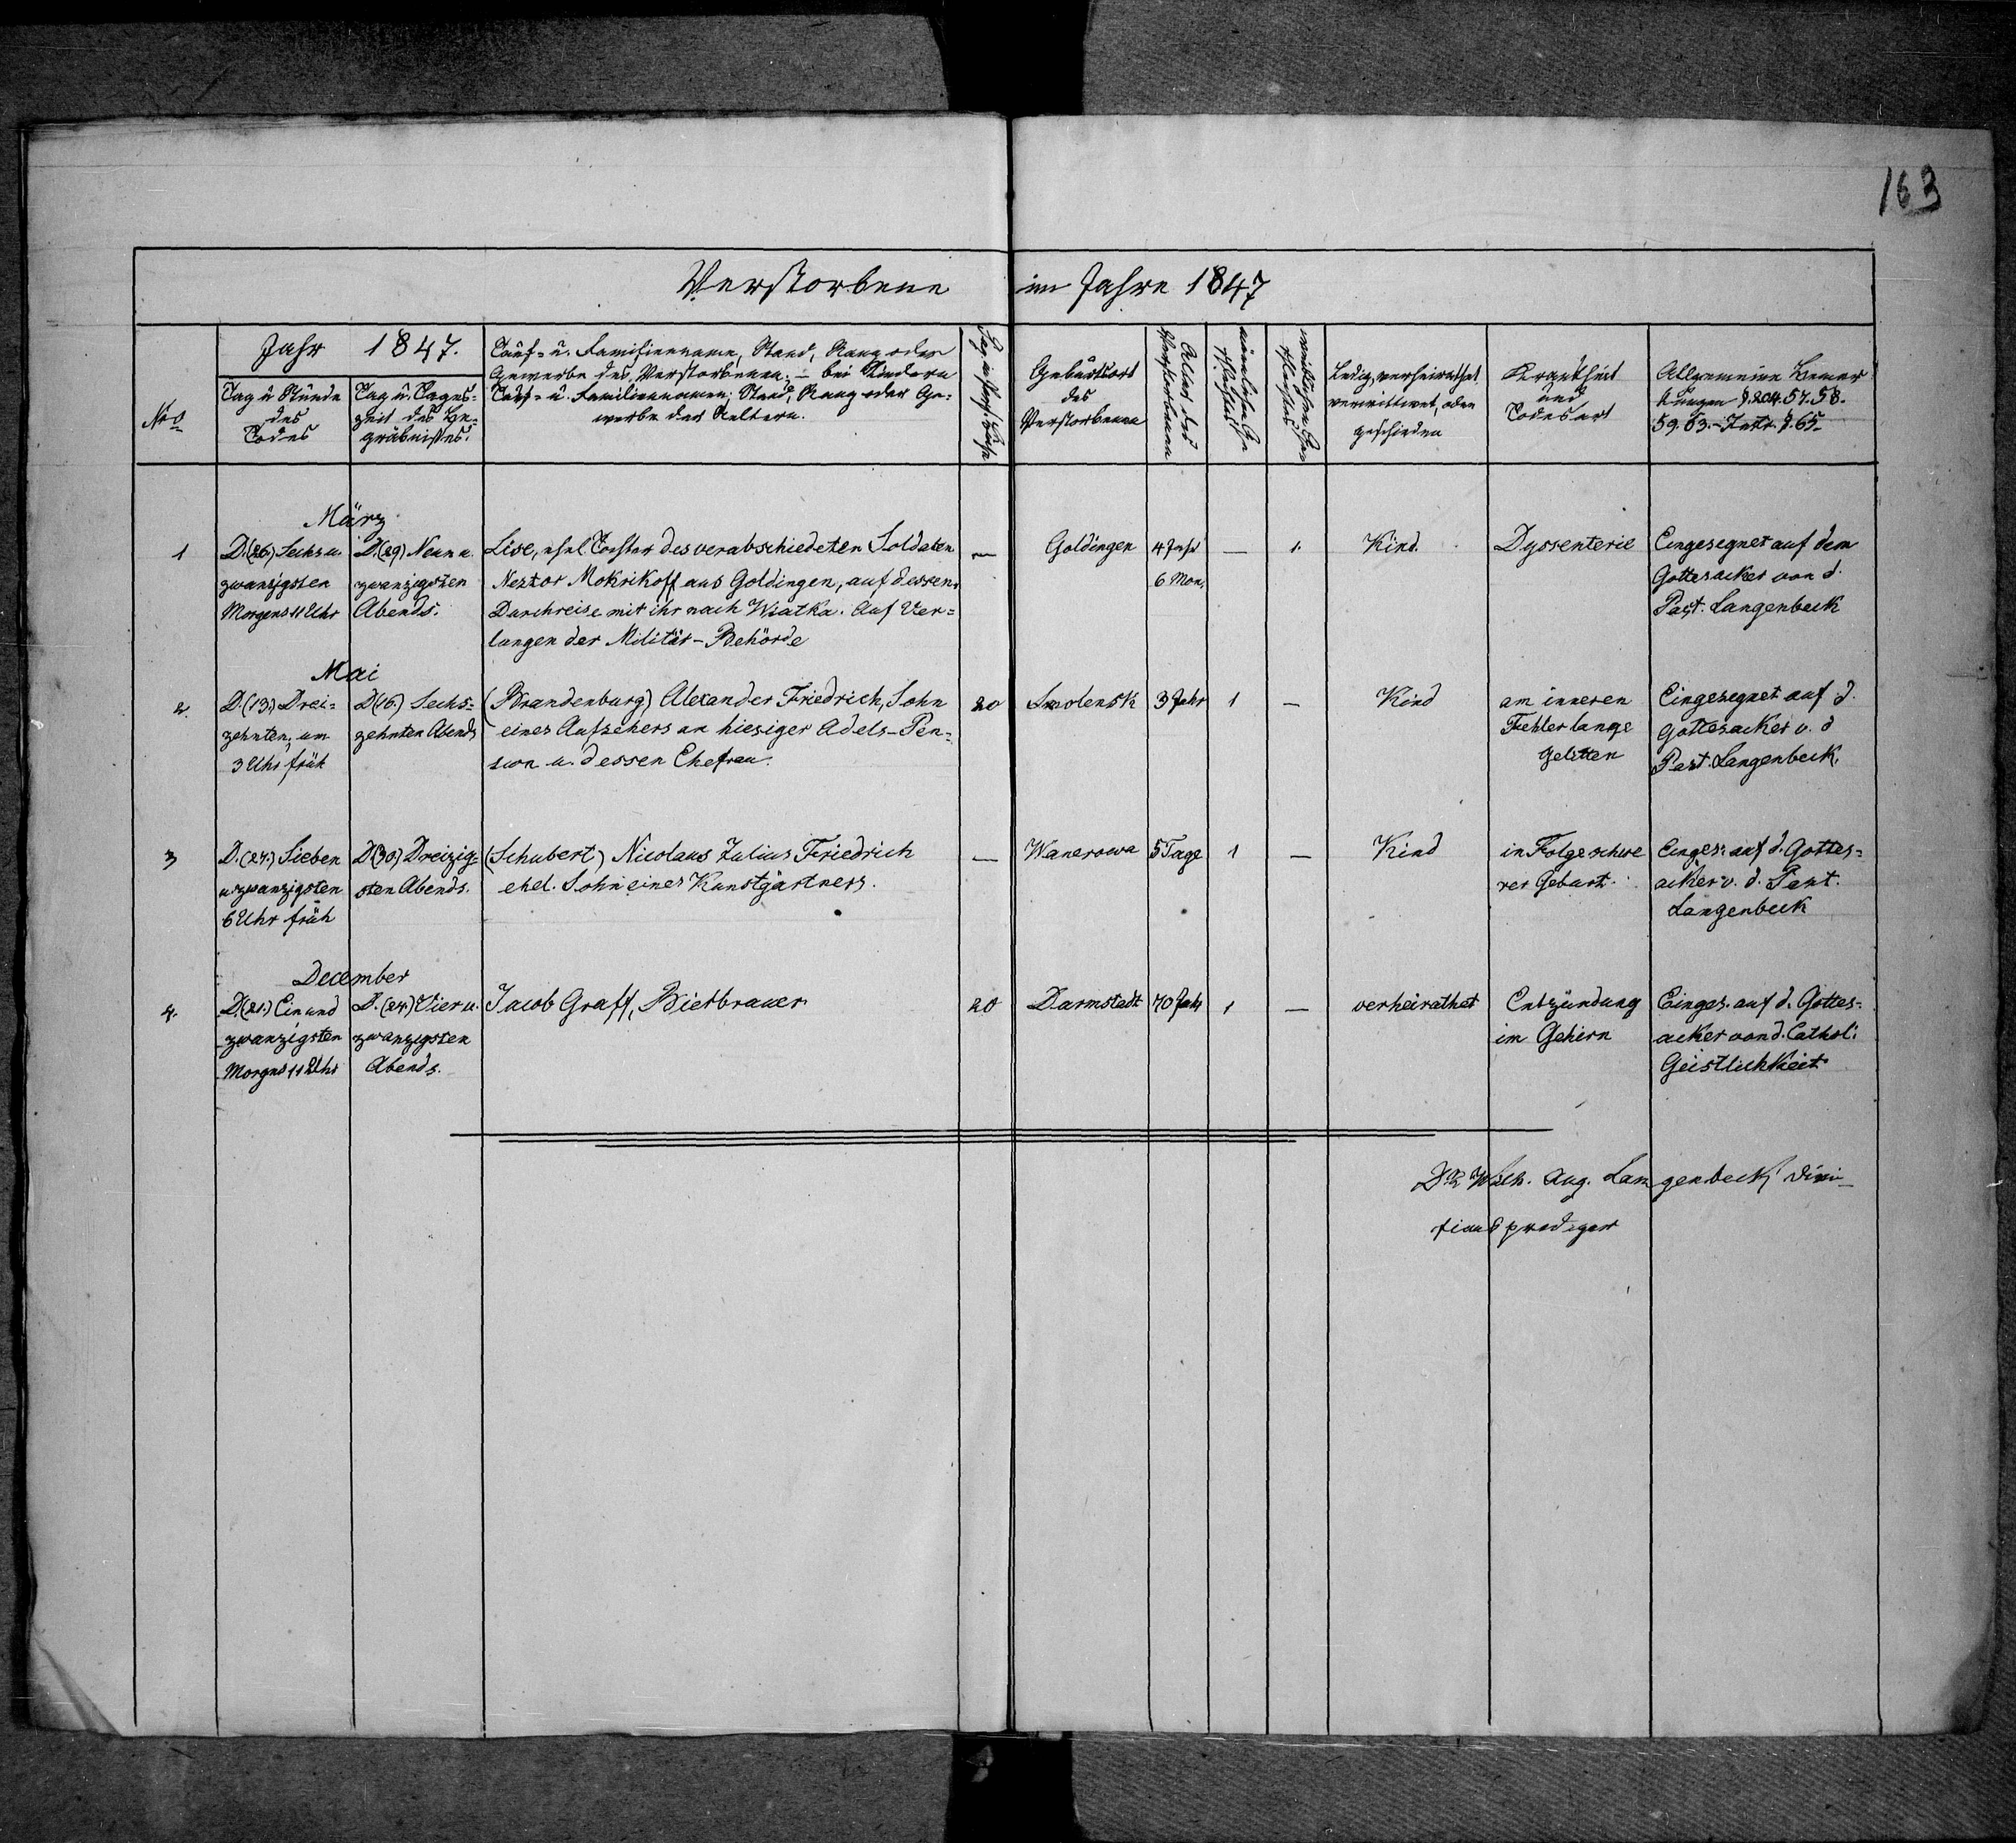 163
Verstorbene im Jahre 1847
Jahr 1847.
No
Tag u Stunde
des
Todes
Tag u. Tages-
zeit des Be-
gräbnisses.
Tauf- u. Familienname, Stand, Rang oder
Gewerbe des Verstorbenen. – bei Kindern
Tauf- u. Familiennamen, Stand, Rang oder Ge-
werbe der Aeltern.
Geburtsort
des
Verstorbenen
Alter des
Verstorbenen
männlichen Ge-
schlechts
weiblichen Ge-
schlechts
Ledig, verheirathet
verwittwet, oder
geschieden
Krankheit
und
Todesart
Allgemeine Bemer
kungen §. 204. 57. 58.
59. 63. – Instr. §. 65.
März
1
D. (26.) Sechs u.
zwanzigsten
Morgens 11 Uhr
D. (29) Neun u.
zwanzigsten
Abends.
Lise, ehel. Tochter des verabschiedeten Soldaten
Nestor Mokrikoff aus Goldingen, auf dessen
Durchreise mit ihr nach Wiatka. Auf Ver-
langen der Militär-Behörde
—
Goldingen
4 Jahr
6 Mon.
—
1.
Kind.
Dyssenterie
Eingesegnet auf dem
Gottesacker von d.
Past. Langenbeck
Mai
2.
D. (13.) Drei-
zehnten, um
3 Uhr früh
D (16.) Sechs-
zehnten Abends
(Brandenburg) Alexander Friedrich, Sohn
eines Aufsehers an hiesiger Adels-Pen-
sion u. dessen Ehefrau.
20
Smolensk
3 Jahr
1
—
Kind
am inneren
Fehler lange
gelitten
Eingesegnet auf d.
Gottesacker v. d
Past. Langenbeck.
3
D. (27.) Sieben
u. zwanzigsten
6 Uhr früh
D (30) Dreizig-
sten Abends.
(Schubert) Nicolaus Julius Friedrich
ehel. Sohn eines Kunstgärtners.
—
Wanerowa
5 Tage
1
—
Kind
in Folge schwe
rer Geburt.
Einges. auf d. Gottes-
acker v. d. Past.
Langenbeck
December
4.
D. (21.) Ein und
zwanzigsten
Morgens 11 Uhr
D. (24.) Vier u.
zwanzigsten
Abends.
Jacob Graff, Bierbrauer
20
Darmstadt
70 Jahr
1
—
verheirathet
Entzündung
im Gehirn
Einges. auf d. Gottes-
acker von d. Cathol:
Geistlichkeit
Wilh. Aug. Langenbeck, Divi-
sionsprediger